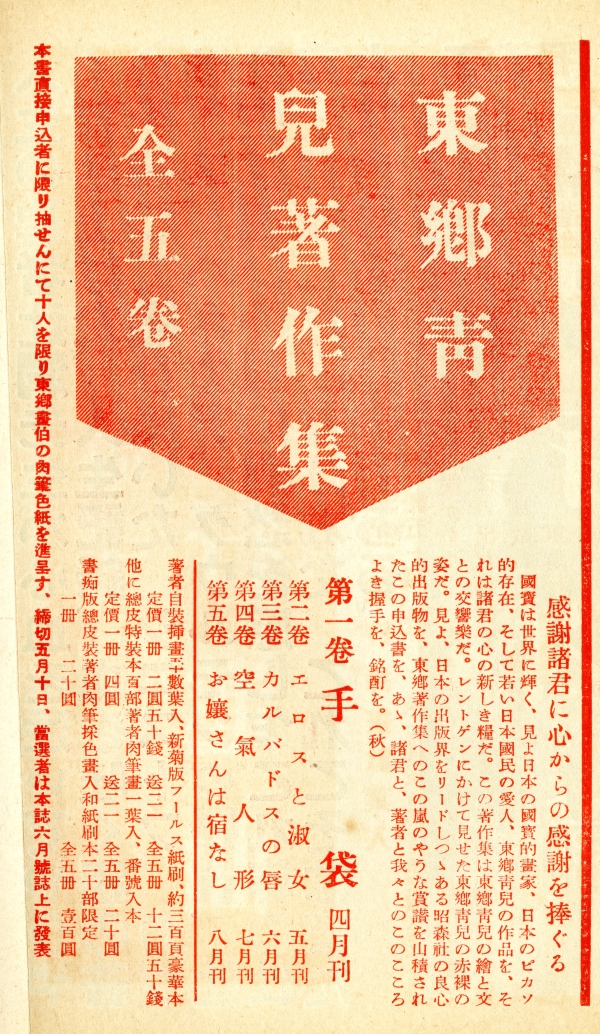 東鄉靑
兒著作集
全五卷
感謝諸君に心からの感謝を捧ぐる
國寶は世界に輝く、見よ日本の國寶的畫家、日本のピカソ
的存在、そして若い日本國民の愛人、東鄉靑兒の作品を、そ
れは諸君の心の新しき糧だ。この著作集は東鄉靑兒の繪と文
との交響樂だ。レントゲンにかけて見せた東鄉靑兒の赤裸の
姿だ。見よ、日本の出版界をリードしつゝある昭森社の良心
的出版物を、東鄉著作集へのこの嵐のやうな賞讃を山積され
たこの申込書を、あゝ、諸君と、著者と我々とのこのこころ
よき握手を、銘酊を。（秋）
第一卷 手袋 四月刊
第二卷 エロスと淑女 五月刊
第三卷 カルバドスの唇 六月刊
第四卷 空氣人形 七月刊
第五卷 お孃さんは宿なし 八月刊
著者自裝挿畫二十數葉入、新菊版フールス紙刷、約三百頁豪華本
定價一冊 二圓五十錢 送二一 全五冊 十二圓五十錢
他に總皮特裝本百部著者肉筆畫一葉入、番號入本
定價一冊 四圓 送二一 全五冊 二十圓
書痴版總皮裝著者肉筆採色畫入和紙刷本二十部限定
一冊 二十圓 全五冊 壹百圓
本書直接申込者に限り抽せんにて十人を限り東鄉畫伯の肉筆色紙を進呈す、締切五月十日、當選者は本誌六月號誌上に發表